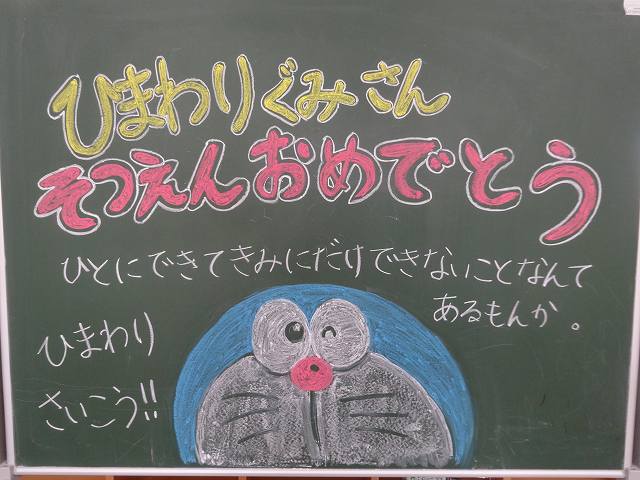 ひまわりぐみさん
そつえんおめでとう
ひとにできてきみにだけできないことなんて
あるもんか。
ひまわり
さいこう!!